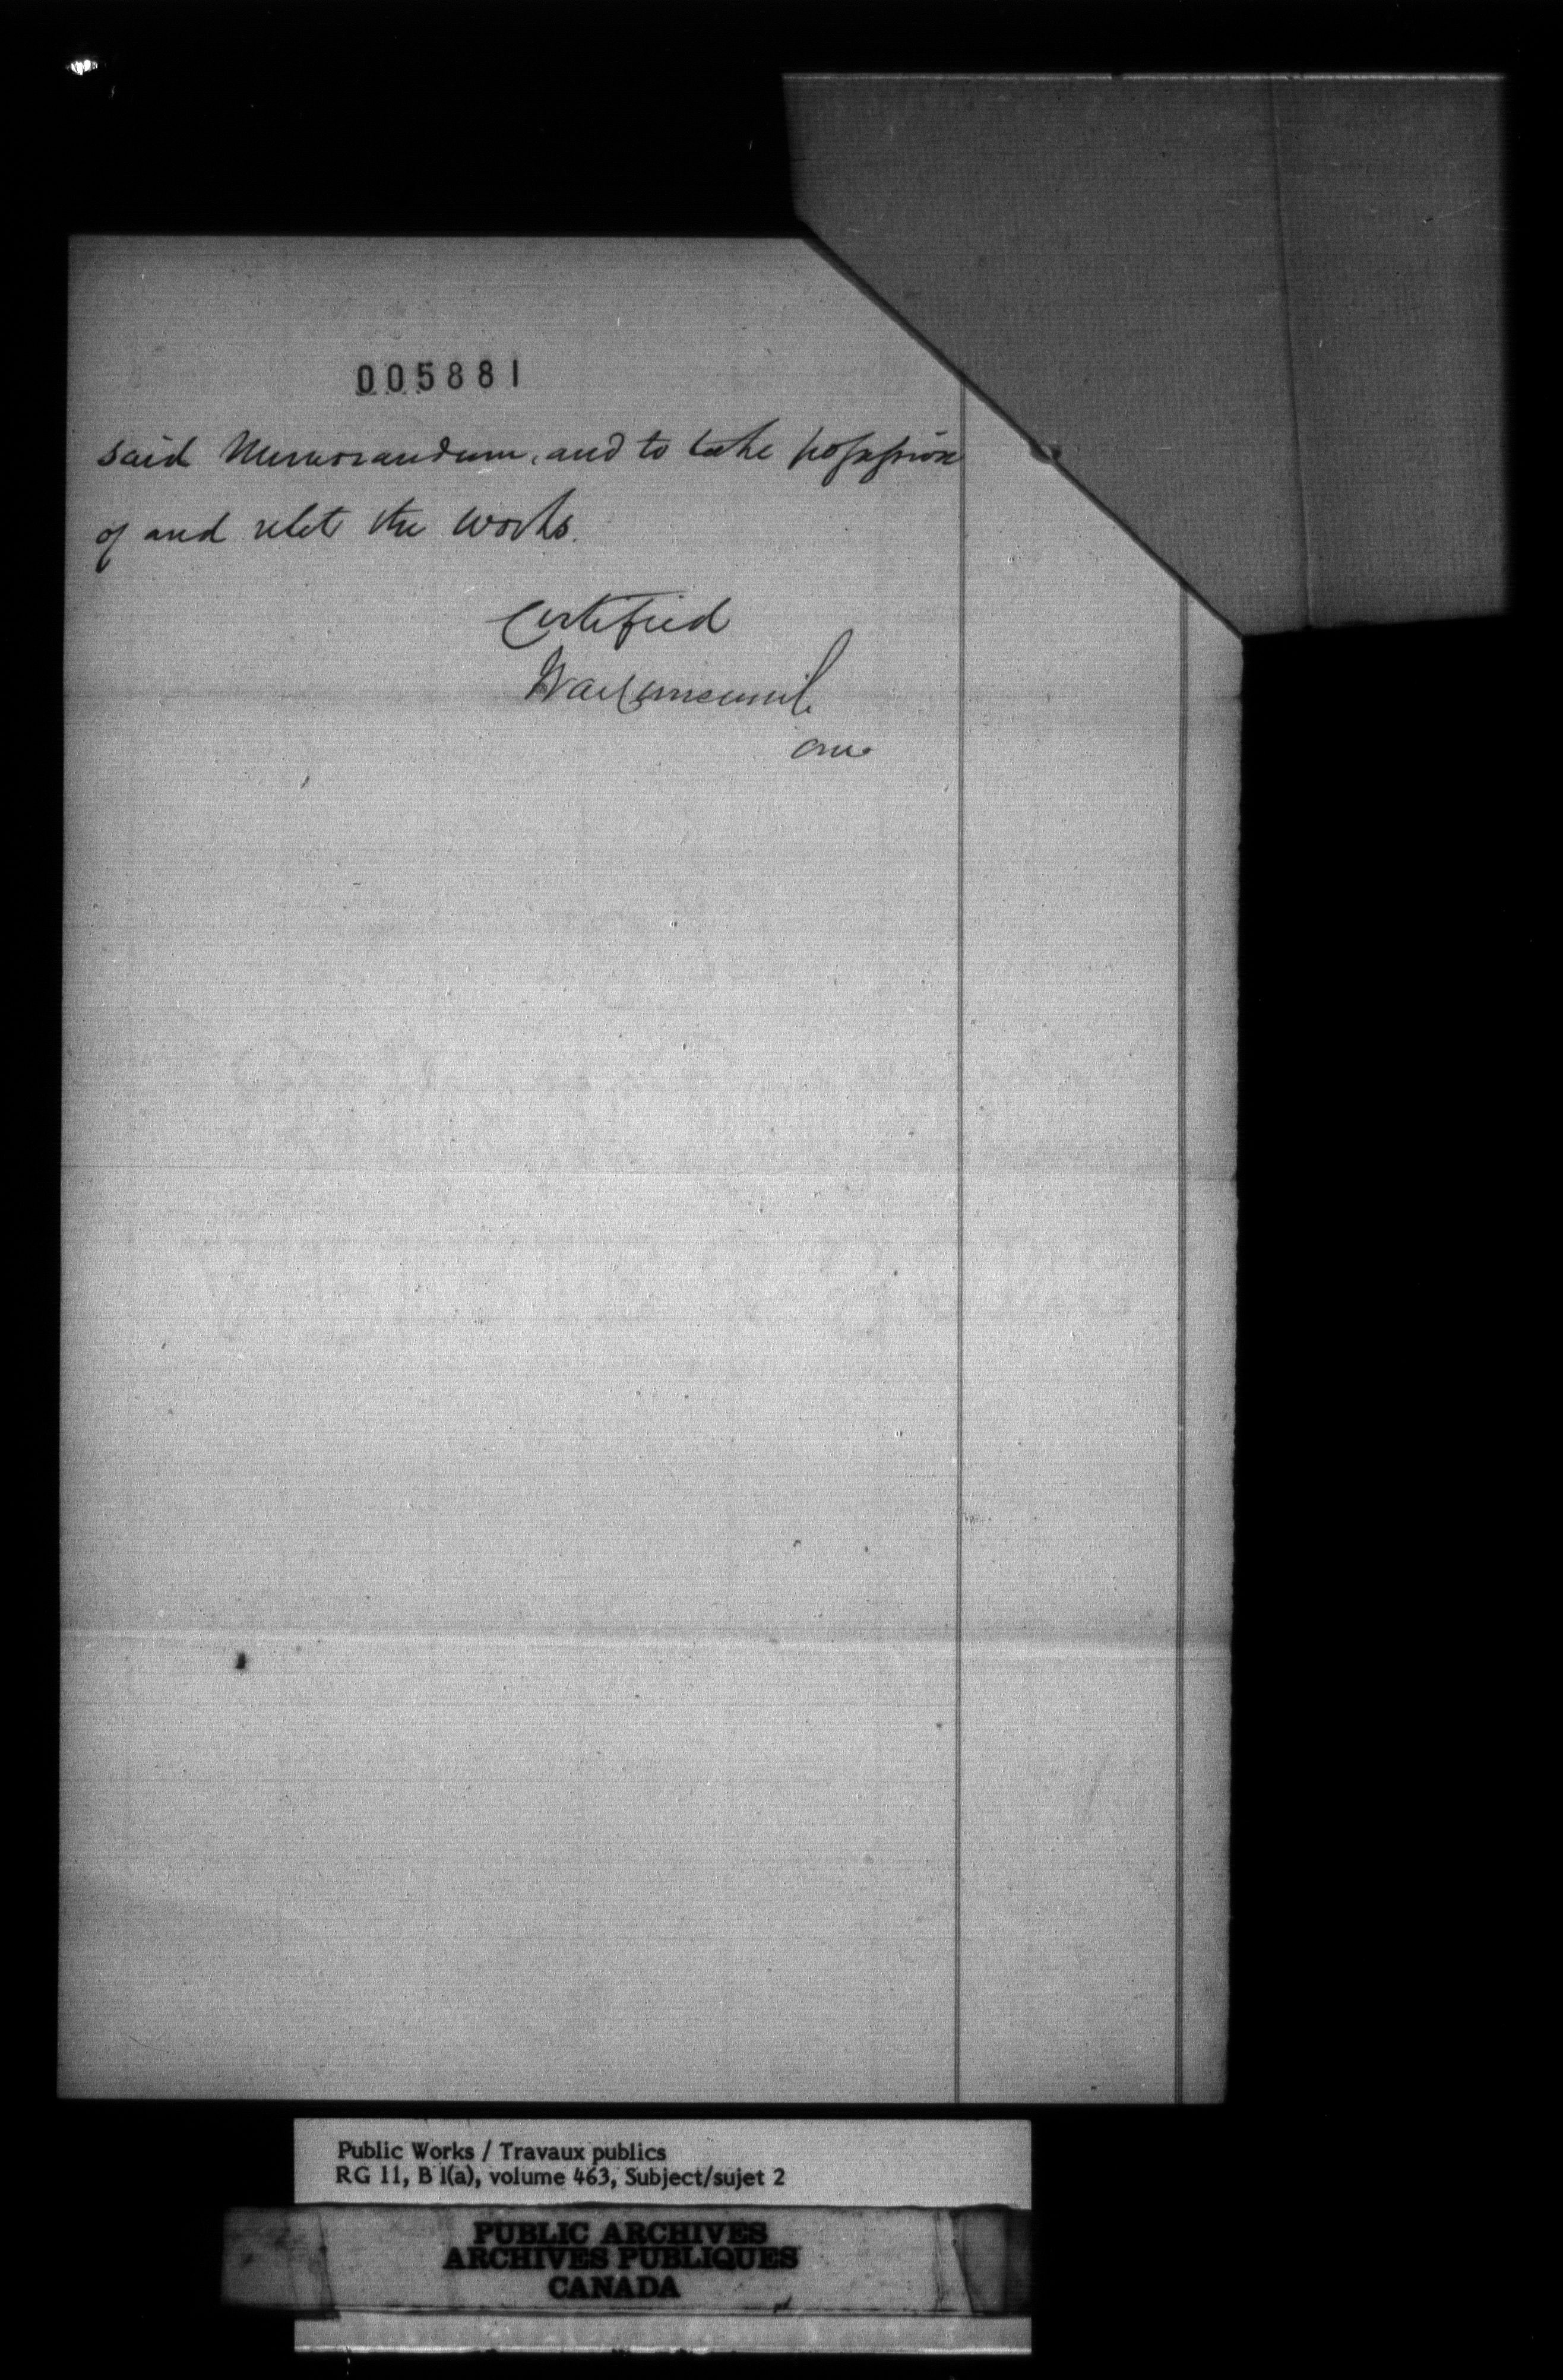 005881
said Memorandum, and to take possession
of and relet the works.
Certified
Public Works / Travaux publics
RG 11, B 1(a), volume 463, Subject/sujet 2
PUBLIC ARCHIVES
ARCHIVES PUBLIQUES
CANADA